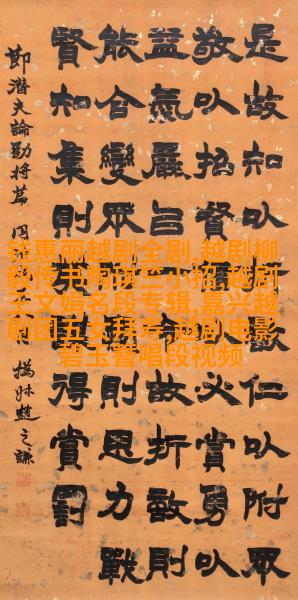 是故知以折敵仁以附眾
敬以招賢信以必賞勇以
益氣嚴吕一令故折敵則
能合變眾附則思力戰
賢知集則英謀得賞罰
節潛夫論勸將篇
撝叔趙之謙
茅惠丽越剧全剧,越剧柳
毅传书
小招,越剧
王文娟名段专辑,嘉兴越
剧团五女拜寿,越剧电影
碧玉簪唱段视频